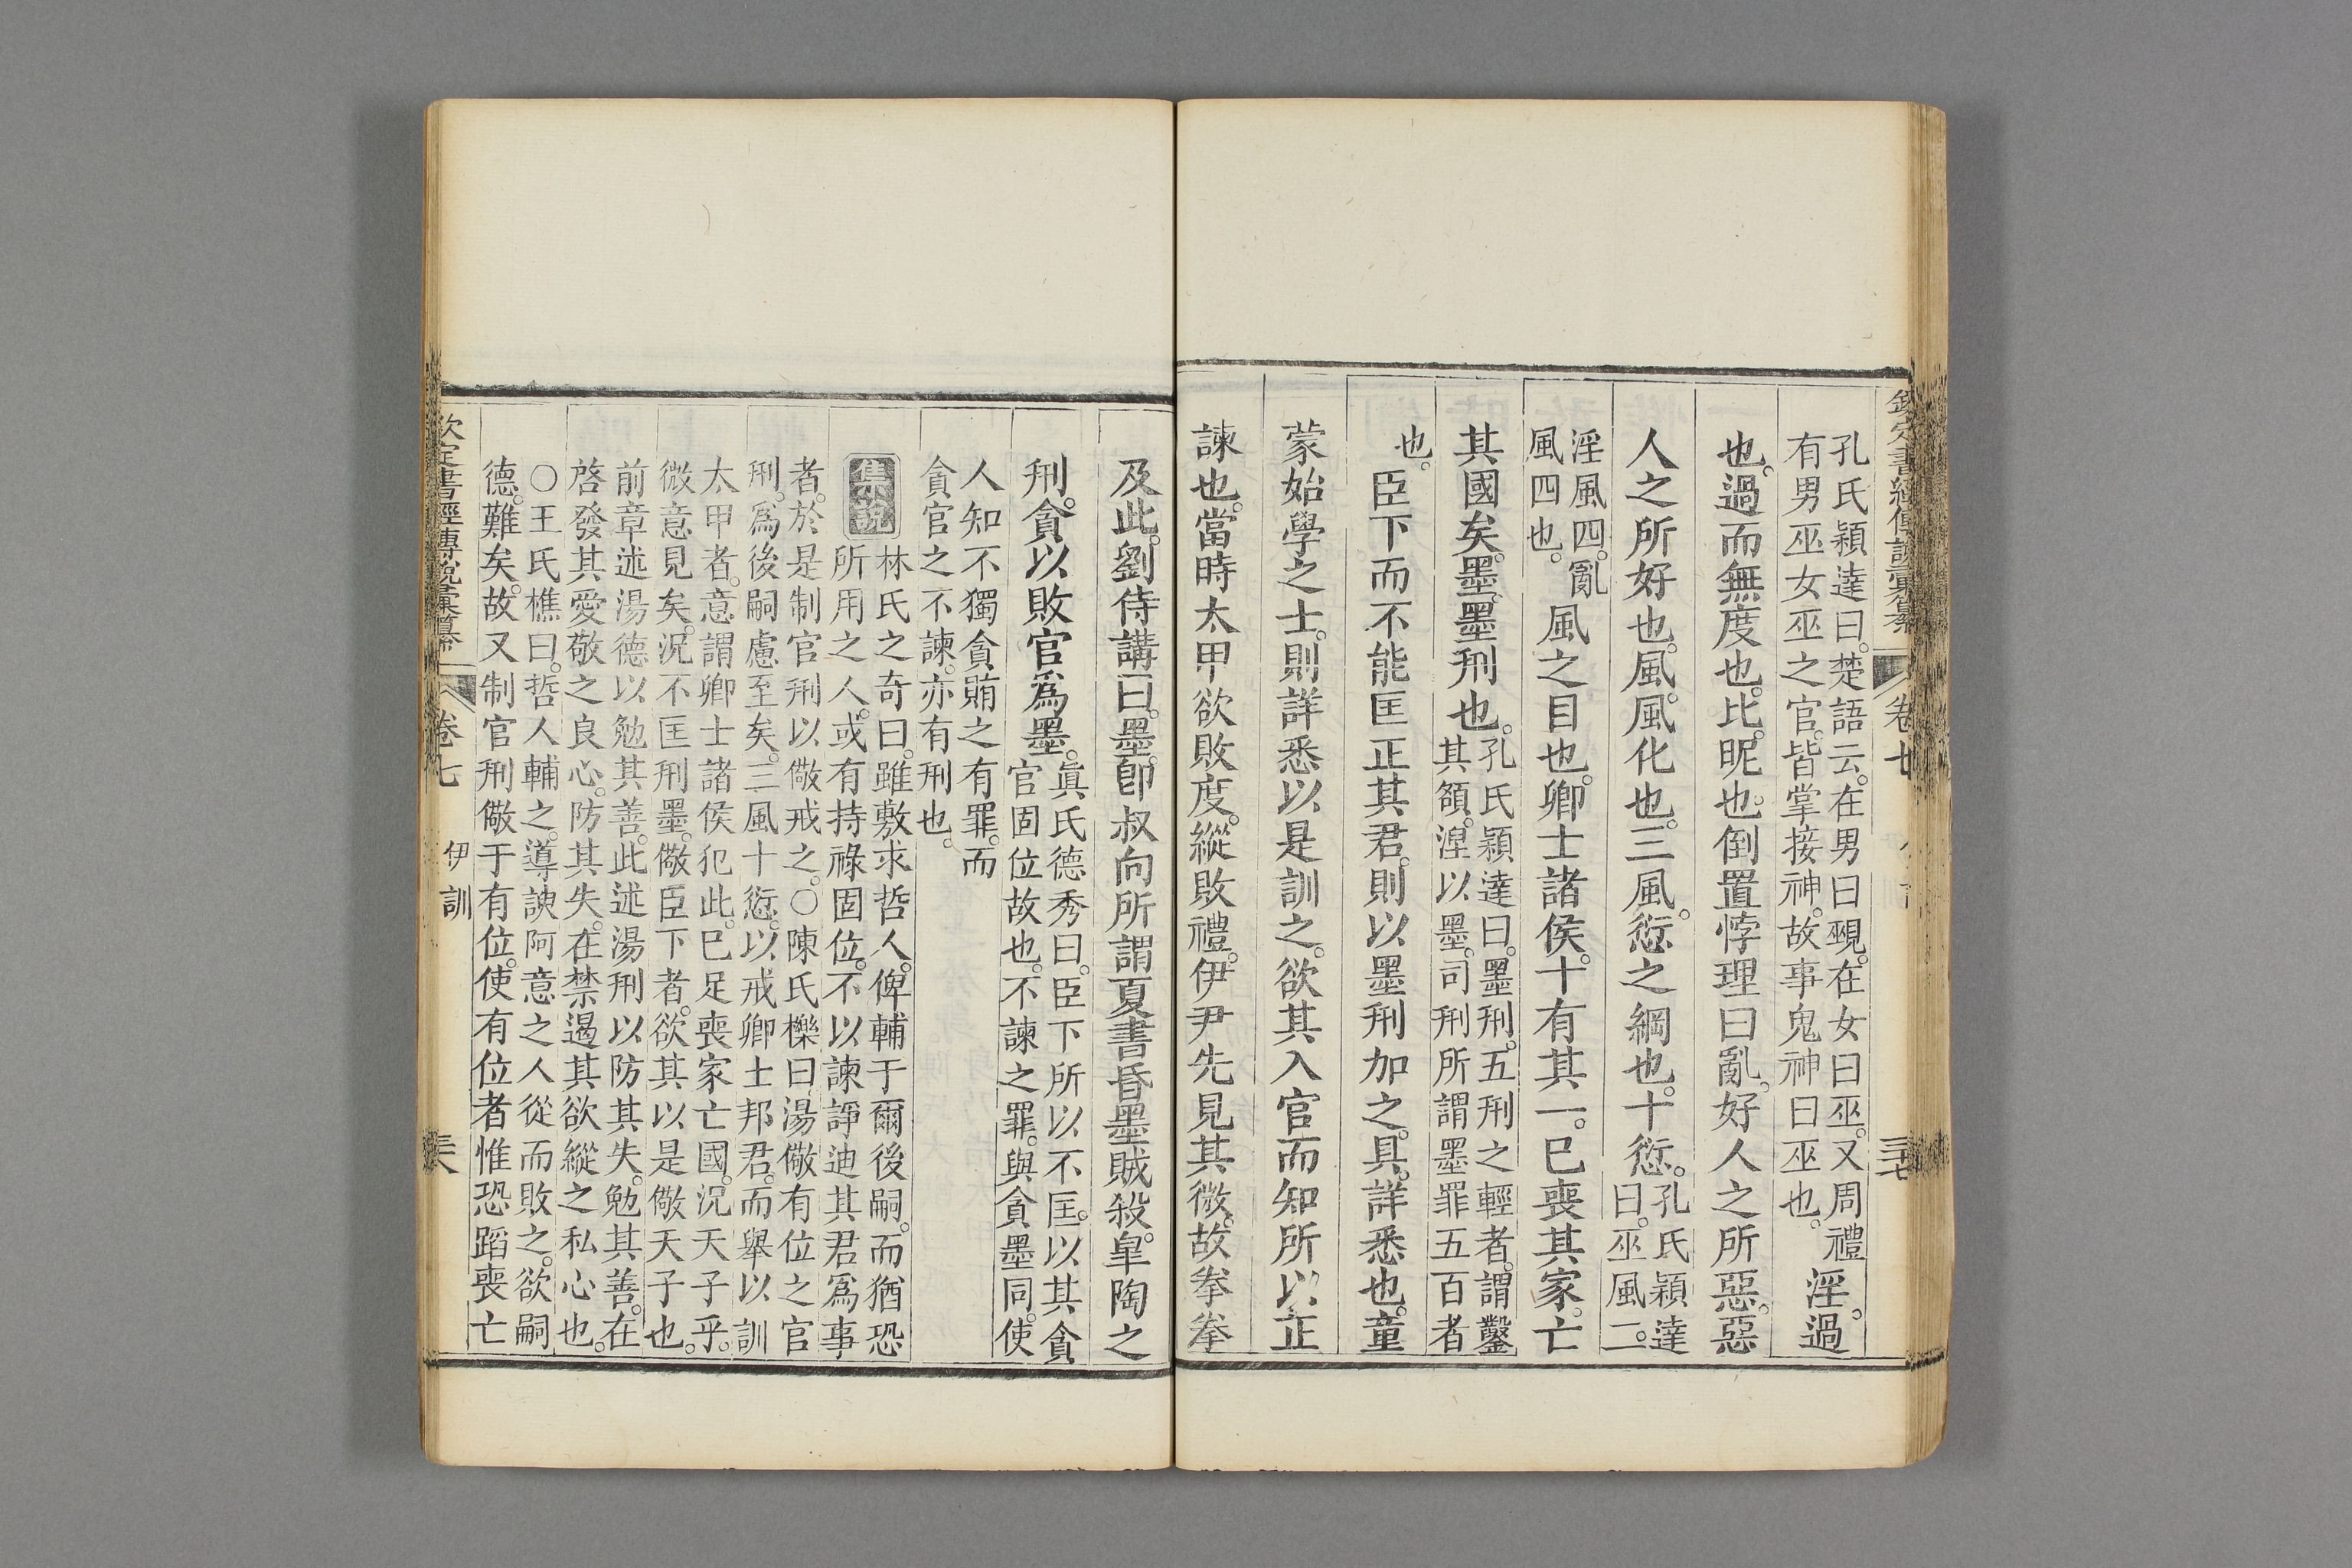 孔氏穎達曰。楚語云。在男曰覡。在女曰巫。又周禮
有男巫女巫之官。皆掌接神。故事鬼神曰巫也。
淫。過
也。過而無度也。比。昵也。倒置悖理曰亂。好人之所惡。惡
人之所好也。風。風化也。三風。愆之綱也。十愆。
孔氏穎達
曰。巫風二。
淫風四。亂
風四也。
風之目也。卿士諸侯。十有其一。已喪其家。亡
其國矣。墨。墨刑也。
孔氏穎達曰。墨刑。五刑之輕者。謂鑿
其額。湼以墨。司刑所謂墨罪五百者
也。
臣下而不能匡正其君。則以墨刑加之。具。詳悉也。童
蒙始學之士。則詳悉以是訓之。欲其入官而知所以正
諫也。當時太甲欲敗度。縱敗禮。伊尹先見其微。故拳拳
及此。劉侍講曰。墨。卽叔向所謂夏書昏墨賊殺。皐陶之
刑。貪以敗官爲墨。
眞氏德秀曰。臣下所以不匡。以其貪
官固位故也。不諫之罪。與貪墨同。使
人知不獨貪賄之有罪。而
貪官之不諫。亦有刑也。
集說
林氏之奇曰。雖敷求哲人。俾輔于爾後嗣。而猶恐
所用之人。或有持祿固位。不以諫諍迪其君爲事
者。於是制官刑以儆戒之。○陳氏櫟曰。湯儆有位之官
刑。爲後嗣慮至矣。三風十愆。以戒卿士邦君。而舉以訓
太甲者。意謂卿士諸侯犯此。已足喪家亡國。況天子乎。
微意見矣。況不匡刑墨。儆臣下者。欲其以是儆天子也。
前章述湯德以勉其善。此述湯刑以防其失。勉其善。在
啓發其愛敬之良心。防其失。在禁遏其欲縱之私心也。
○王氏樵曰。哲人輔之。導諛阿意之人從而敗之。欲嗣
德。難矣。故又制官刑儆于有位。使有位者惟恐蹈喪亡
欽定書經傳說彙纂
卷七
伊訓